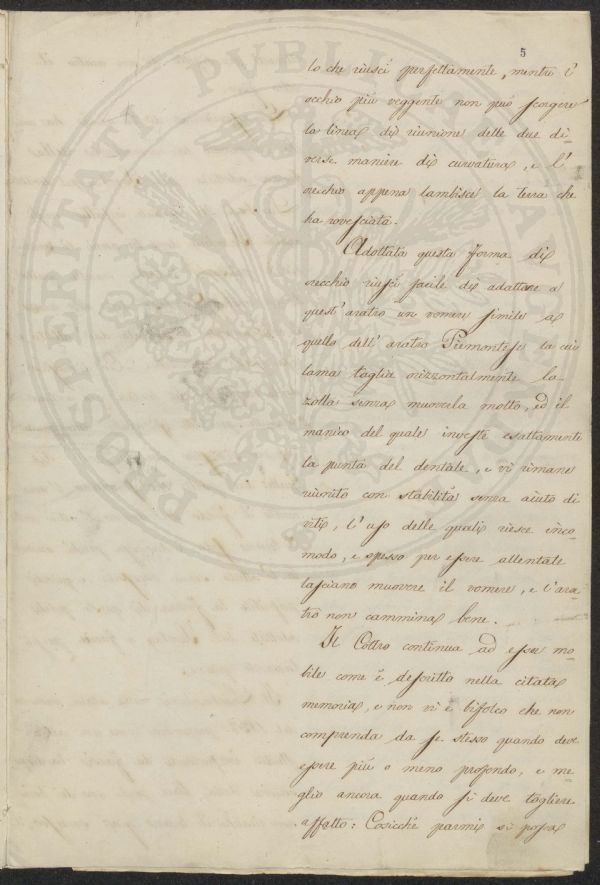 5
lo che riuscì perfettamente, mentre l'
occhio più veggente non può scorgere
la linea di riunione delle due di-
verse maniere di curvatura, e l'
orecchio appena lambisce la terra che
ha rovesciata.
Adottata questa forma di
orecchio riuscì facile di adattare a
quest'aratro un vomere simile a
quello dell'aratro Piemontese la cui
lama taglia orizzontalmente la
zolla senza muoverla molto, ed il
manico del quale investe esattamente
la punta del dentale, e vi rimane
riunito con stabilità senza aiuto di
viti, l'uso delle quali riesce inco-
modo, e spesso per essere allentate
lasciano muovere il vomere, e l'ara-
tro non cammina bene.
Il Coltro continua ad esser mo-
bile come è descritto nella citata
memoria, e non vi è bifolco che non
comprenda da se stesso quando deve
essere più o meno profondo, e me-
glio ancora quando si deve togliere
affatto: Cosicchè parmi si possa
PROSPERITATI PVBLICAE